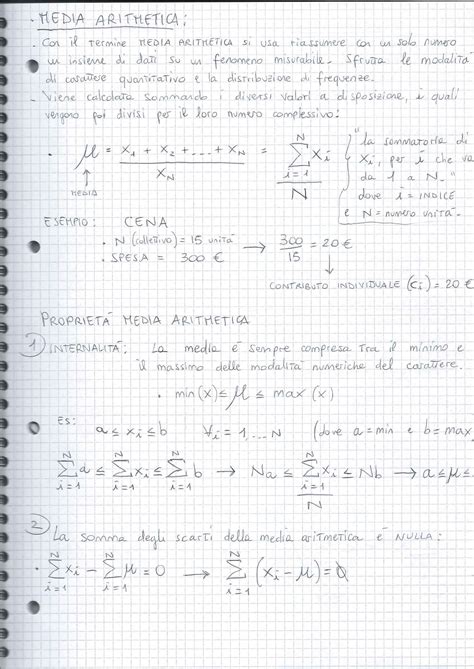 · MEDIA ARITMETICA:
· Con il termine MEDIA ARITMETICA si usa riassumere con un solo numero
un insieme di dati su un fenomeno misurabile. Sfrutta le modalità
di carattere quantitativo e la distribuzione di frequenze.
- Viene calcolata sommando i diversi valori a disposizione, i quali
vengono poi divisi per il loro numero complessivo:
· μ = (x₁ + x₂ + ... + x_N) / x_N = (∑_{i=1}^{N} x_i) / N
↑
MEDIA
"la sommatoria di
x_i, per i che va
da 1 a N."
dove i = INDICE
e N = numero unità.
ESEMPIO: CENA
· N (collettivo) = 15 unità → 300/15 = 20 €
· SPESA = 300 €
↓
CONTRIBUTO INDIVIDUALE (C_i) = 20 €
PROPRIETÀ MEDIA ARITMETICA
1) INTERNALITÀ: La media è sempre compresa tra il minimo e
il massimo delle modalità numeriche del carattere.
· min (x) ≤ μ ≤ max (x)
ES:
a ≤ x_i ≤ b ∀i = 1, ... N (dove a = min e b = max
∑_{i=1}^{N} a ≤ ∑_{i=1}^{N} x_i ≤ ∑_{i=1}^{N} b → Na ≤ (∑_{i=1}^{N} x_i) / N ≤ Nb → a ≤ μ ≤
2) La somma degli scarti della media aritmetica è NULLA:
· ∑_{i=1}^{N} x_i − ∑_{i=1}^{N} μ = 0 → ∑_{i=1}^{N} (x_i − μ) = 0